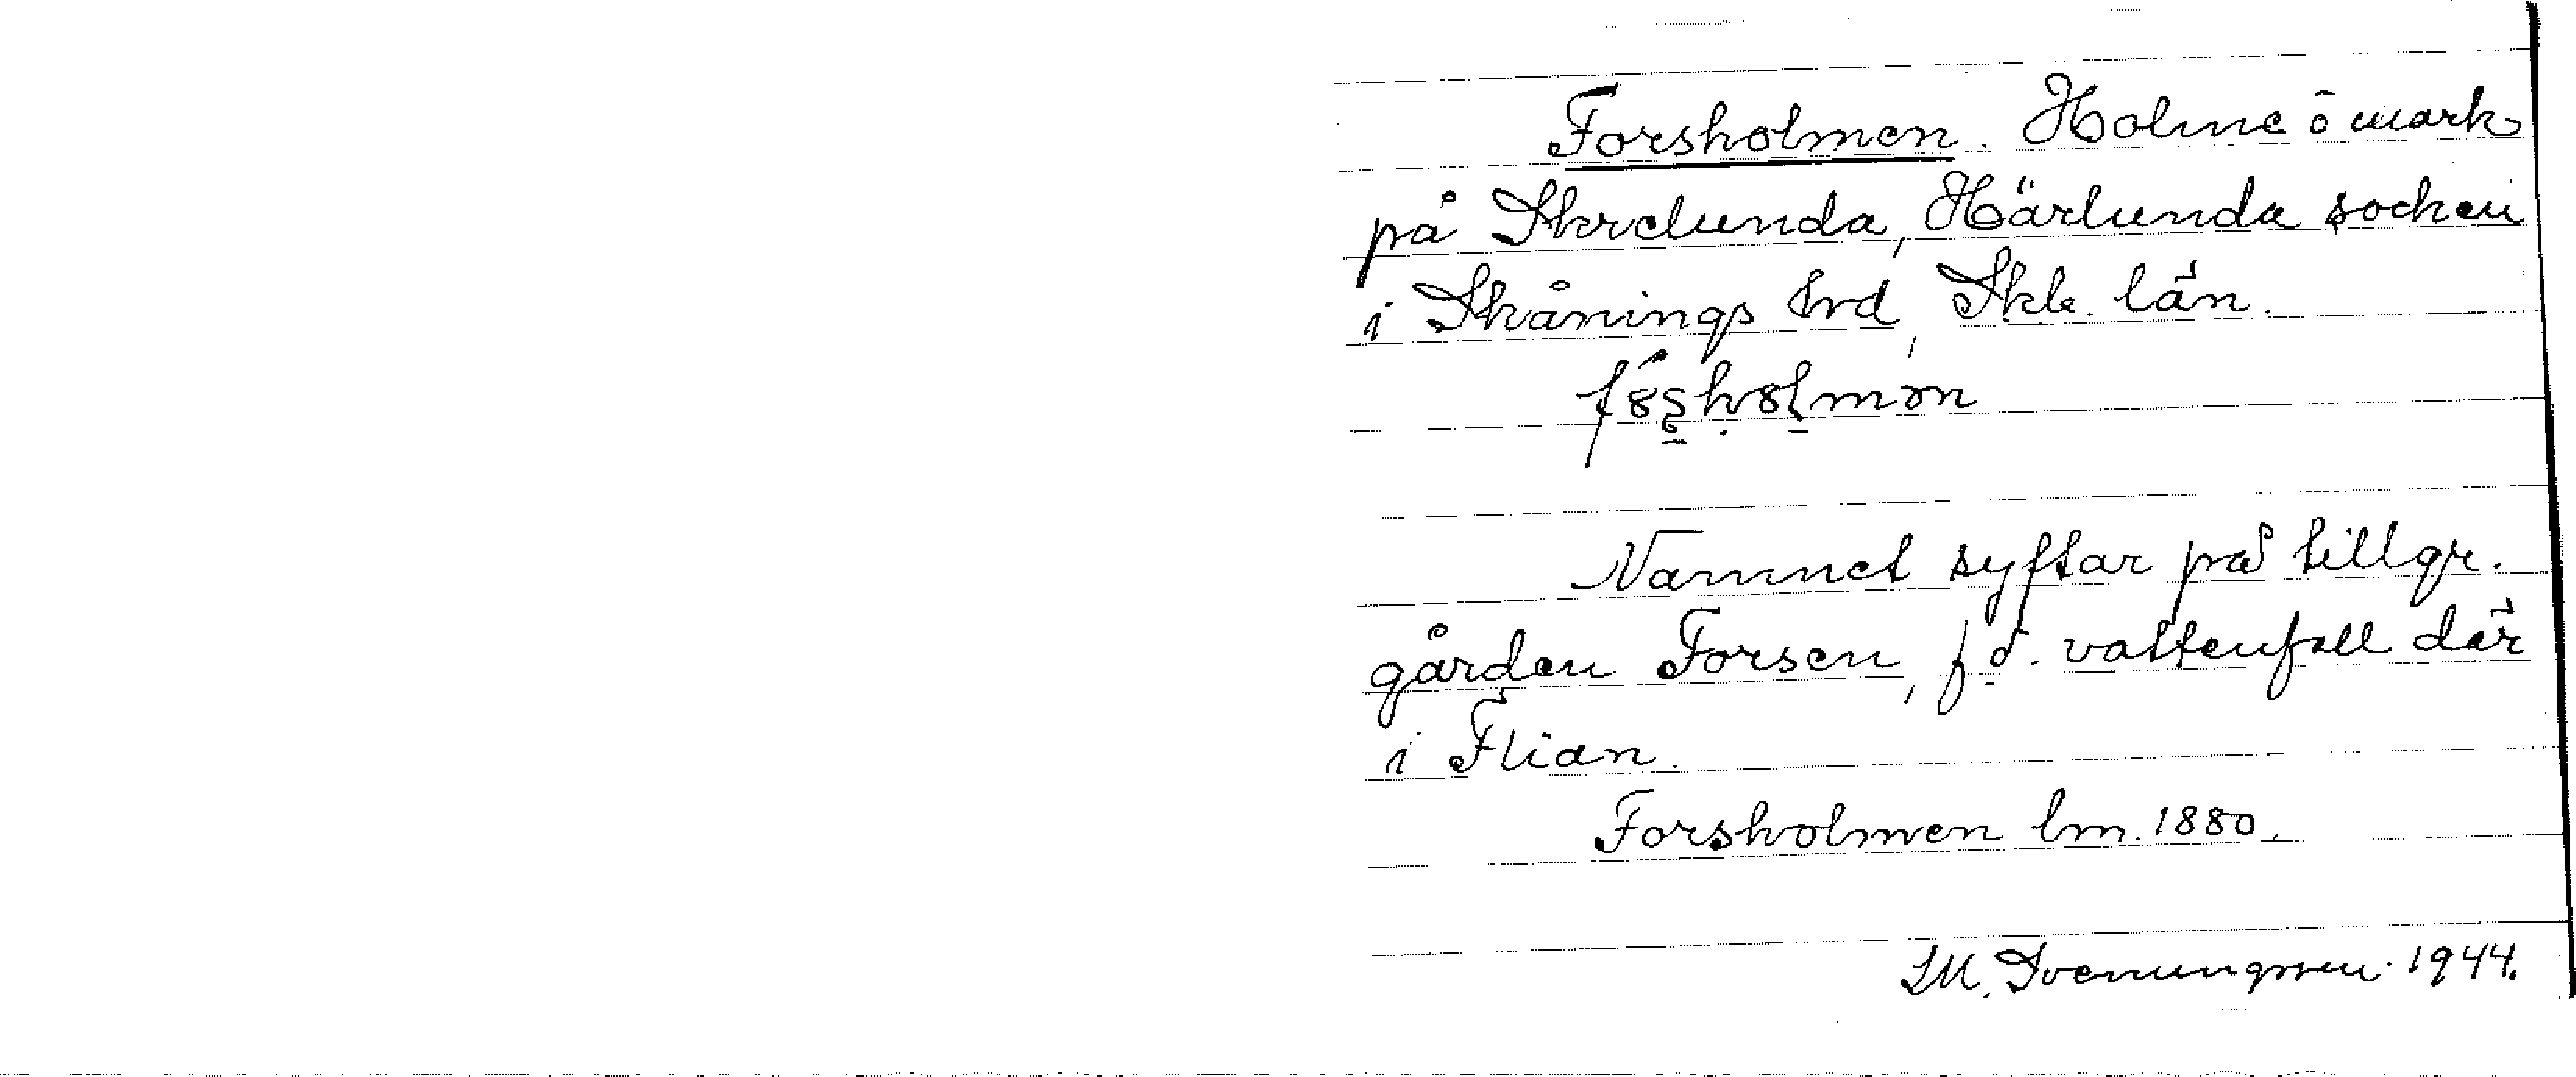 Forsholmen. Holme o mark
på Skrelunda, Härlunda socken
i Skånings hrd, Skb. län.
Namnet syftar på tillgr.
gården Forsen, f.d. vattenfall där
i Flian.
Forsholmen lm. 1880.
M. Svenungsson 1944.